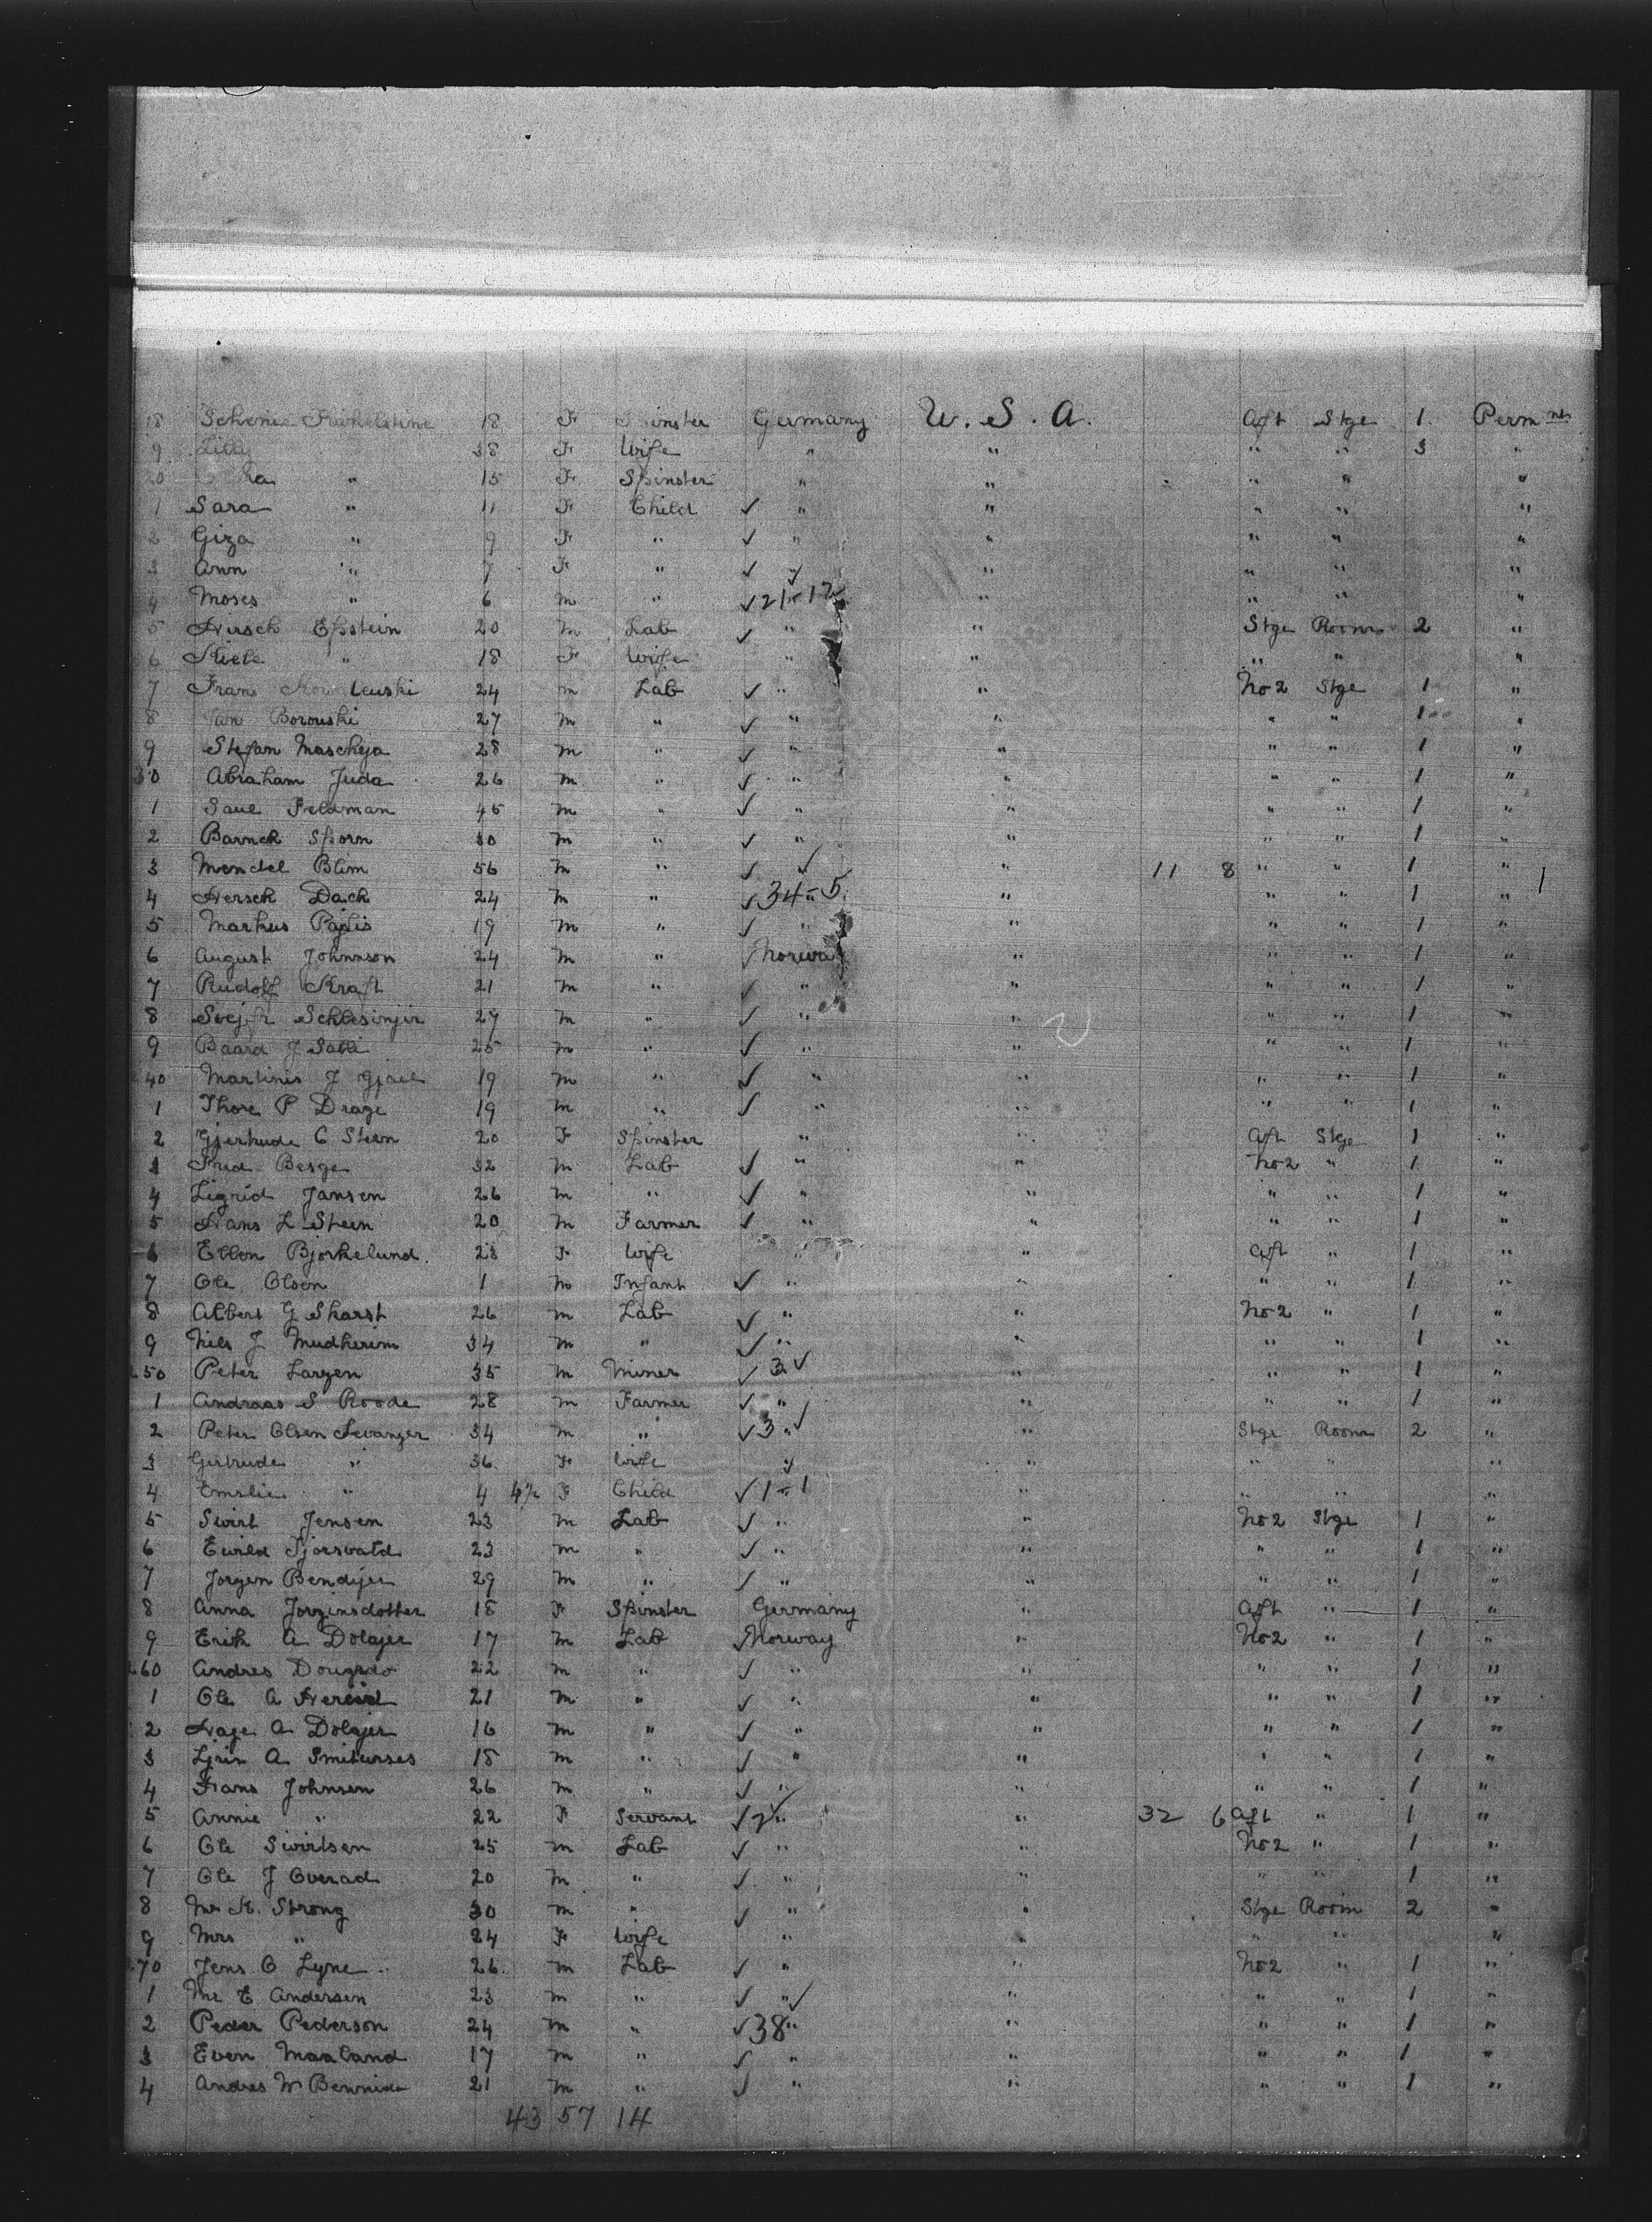 18 18 F Spinster Germany U. S. A. Aft Stge 1 Perm nt
9 Lilly 38 F Wife " " " " 3 "
20 " 15 F Spinster " " " " "
1 Sara " 11 F Child ✓ " " " " "
2 Giza " 9 F " ✓ " " " " "
3 Ann " 7 F " ✓ " " " " "
4 Moses " 6 m " ✓ 21 - 12 " " " "
5 Hirsch Epstein 20 m Lab ✓ " " Stge Room 2 "
6 " 18 F Wife " " " " "
7 Frans 24 m Lab ✓ " " No 2 Stge 1 "
8 Borouski 27 m " ✓ " " " " 1 "
9 Stefan Mascheja 28 m " ✓ " " " " 1 "
30 Abraham Juda 26 m " ✓ " " " " 1 "
1 Saul Feldman 45 m " ✓ " " " " 1 "
2 Barnch Sporn 30 m " ✓ " " " " 1 "
3 Mendel Blim 56 m " ✓ " " 11 8 " " 1 "
4 Hersch Dach 24 m " ✓ 34 - 5 " " " 1 " 1
5 Markus 19 m " ✓ " " " " 1 "
6 August Johnnson 24 m " Norway " " " 1 "
7 Rudolf Kraft 21 m " ✓ " " " " 1 "
8 Schlesinjir 27 m " ✓ " " " " 1 "
9 Baard J 25 m " ✓ " " " " 1 "
240 Martinis J Gjael 19 m " ✓ " " " " 1 "
1 Thore P Drage 19 m " ✓ " " " " 1 "
2 Gjertrude C Steen 20 F Spinster " " Aft Stge 1 "
3 Fred Besge 32 m Lab ✓ " " No 2 " 1 "
4 Ligrid Jansen 26 m " ✓ " " " " 1 "
5 Hans L Steen 20 m Farmer ✓ " " " " 1 "
6 Ellen Bjorkelund 28 F Wife " " Aft " 1 "
7 Ole Olsen 1 m Infant ✓ " " " " 1 "
8 Albert G Skarst 26 m Lab ✓ " " No 2 " 1 "
9 Nils J Mudherim 34 m " ✓ " " " " 1 "
250 Peter Largen 35 m Miner ✓ 3 ✓ " " " 1 "
1 Andraas S Roode 28 m Farmer ✓ " " " " 1 "
2 Peter Olsen Levanger 34 m " ✓ 3 ✓ " Stge Room 2 "
3 Gertrude " 36 F Wife " " " " "
4 Emelie " 4 F Child ✓ 1 - 1 " " " "
5 Swirt Jensen 23 m Lab ✓ " " No 2 Stge 1 "
6 Ewild Tjorsvatd 23 m " ✓ " " " " 1 "
7 Jorgen Bendijer 29 m " ✓ " " " " 1 "
8 Anna Jorginsdotter 18 F Spinster Germany " Aft " 1 "
9 Erik A Dolajer 17 m Lab ✓ Norway " No 2 " 1 "
260 Andres Dougsdo 22 m " ✓ " " " " 1 "
1 Ole A Hereid 21 m " ✓ " " " " 1 "
2 Hage A Dolajer 16 m " ✓ " " " " 1 "
3 Ljrin A Smiturses 18 m " ✓ " " " " 1 "
4 Frans Johnsen 26 m " ✓ " " " " 1 "
5 Annie " 22 F Servant ✓ 2 " " 32 6 Aft " 1 "
6 Ole Swirtsen 25 m Lab ✓ " " No 2 " 1 "
7 Ole J Overad 20 m " ✓ " " " " 1 "
8 Mr K. Strong 30 m " ✓ " " Stge Room 2 "
9 Mrs " 24 F Wife " " " " "
270 Jens O Lyne 26 m Lab ✓ " " No 2 " 1 "
1 Mr E Andersen 23 m " ✓ " ✓ " " " 1 "
2 Peder Pederson 24 m " ✓ 38 " " " " 1 "
3 Even Maaland 17 m " ✓ " " " " 1 "
4 Andres W Bennida 21 m " ✓ " " " " 1 "
43 57 14